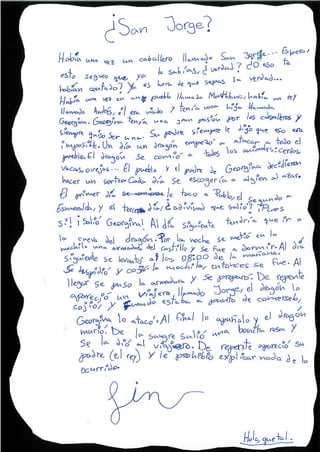 ¿San Jorge?
Había una vez un caballero llamado San Jorge... Espera,
esto seguro que ya lo sabías, ¿verdad? ¿O eso te
habían contado? Ya es hora de que sepas la verdad...
Había una vez en un pueblo llamado Montblanc, había un rey
llamado Andrés, él era viudo y tenía una hija llamada
Georgina. Georgina tenía una gran pasión por los caballeros y
siempre quiso ser una. Su padre siempre le dijo que eso era
imposible. Un día un dragón empezó a atacar a todo el
pueblo. El dragón se comió a todos los animales: cerdos,
vacas, ovejas... El pueblo y el padre de Georgina decidieron
hacer un sorteo. Cada día se escogería a alguien al azar.
El primer día le toco a Pablo, el segundo a
Esmeralda, y el tercer día, ¿adivinad que salió? ¡Pues
sí! ¡Salió Georgina! Al día siguiente tendría que ir a
la cueva del dragón. Por la noche se metió en la
mochila una armadura del castillo y se fue a dormir. Al día
siguiente se levantó a las 08:00 de la mañana.
Se despidió y cojió la mochila, entonces se fue. Al
llegar se puso la armadura y se preparó. De repente
apareció un viajero llamado Jorge, el dragón lo
cojió y cuando estaba a puntito de comerselo,
Georgina lo atacó. Al final lo apuñalo y el dragón
murió. De la sangre salió una bonita rosa y
se la dió al viajero. De repente apareció su
padre (el rey) y le prohibió explicar nada de lo
ocurrido.
Fin
Hola, que tal.